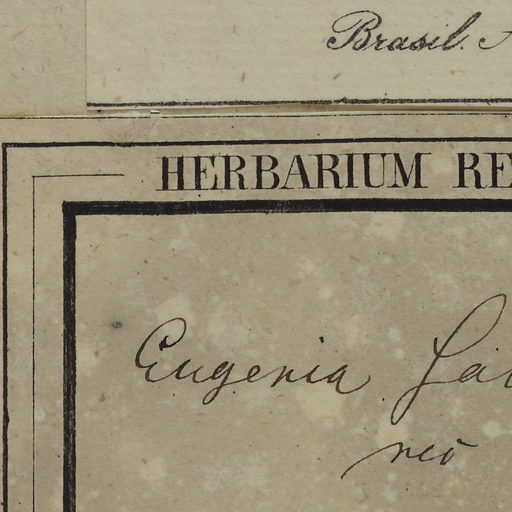 Brasil.
HERBARIUM RE
Eugenia